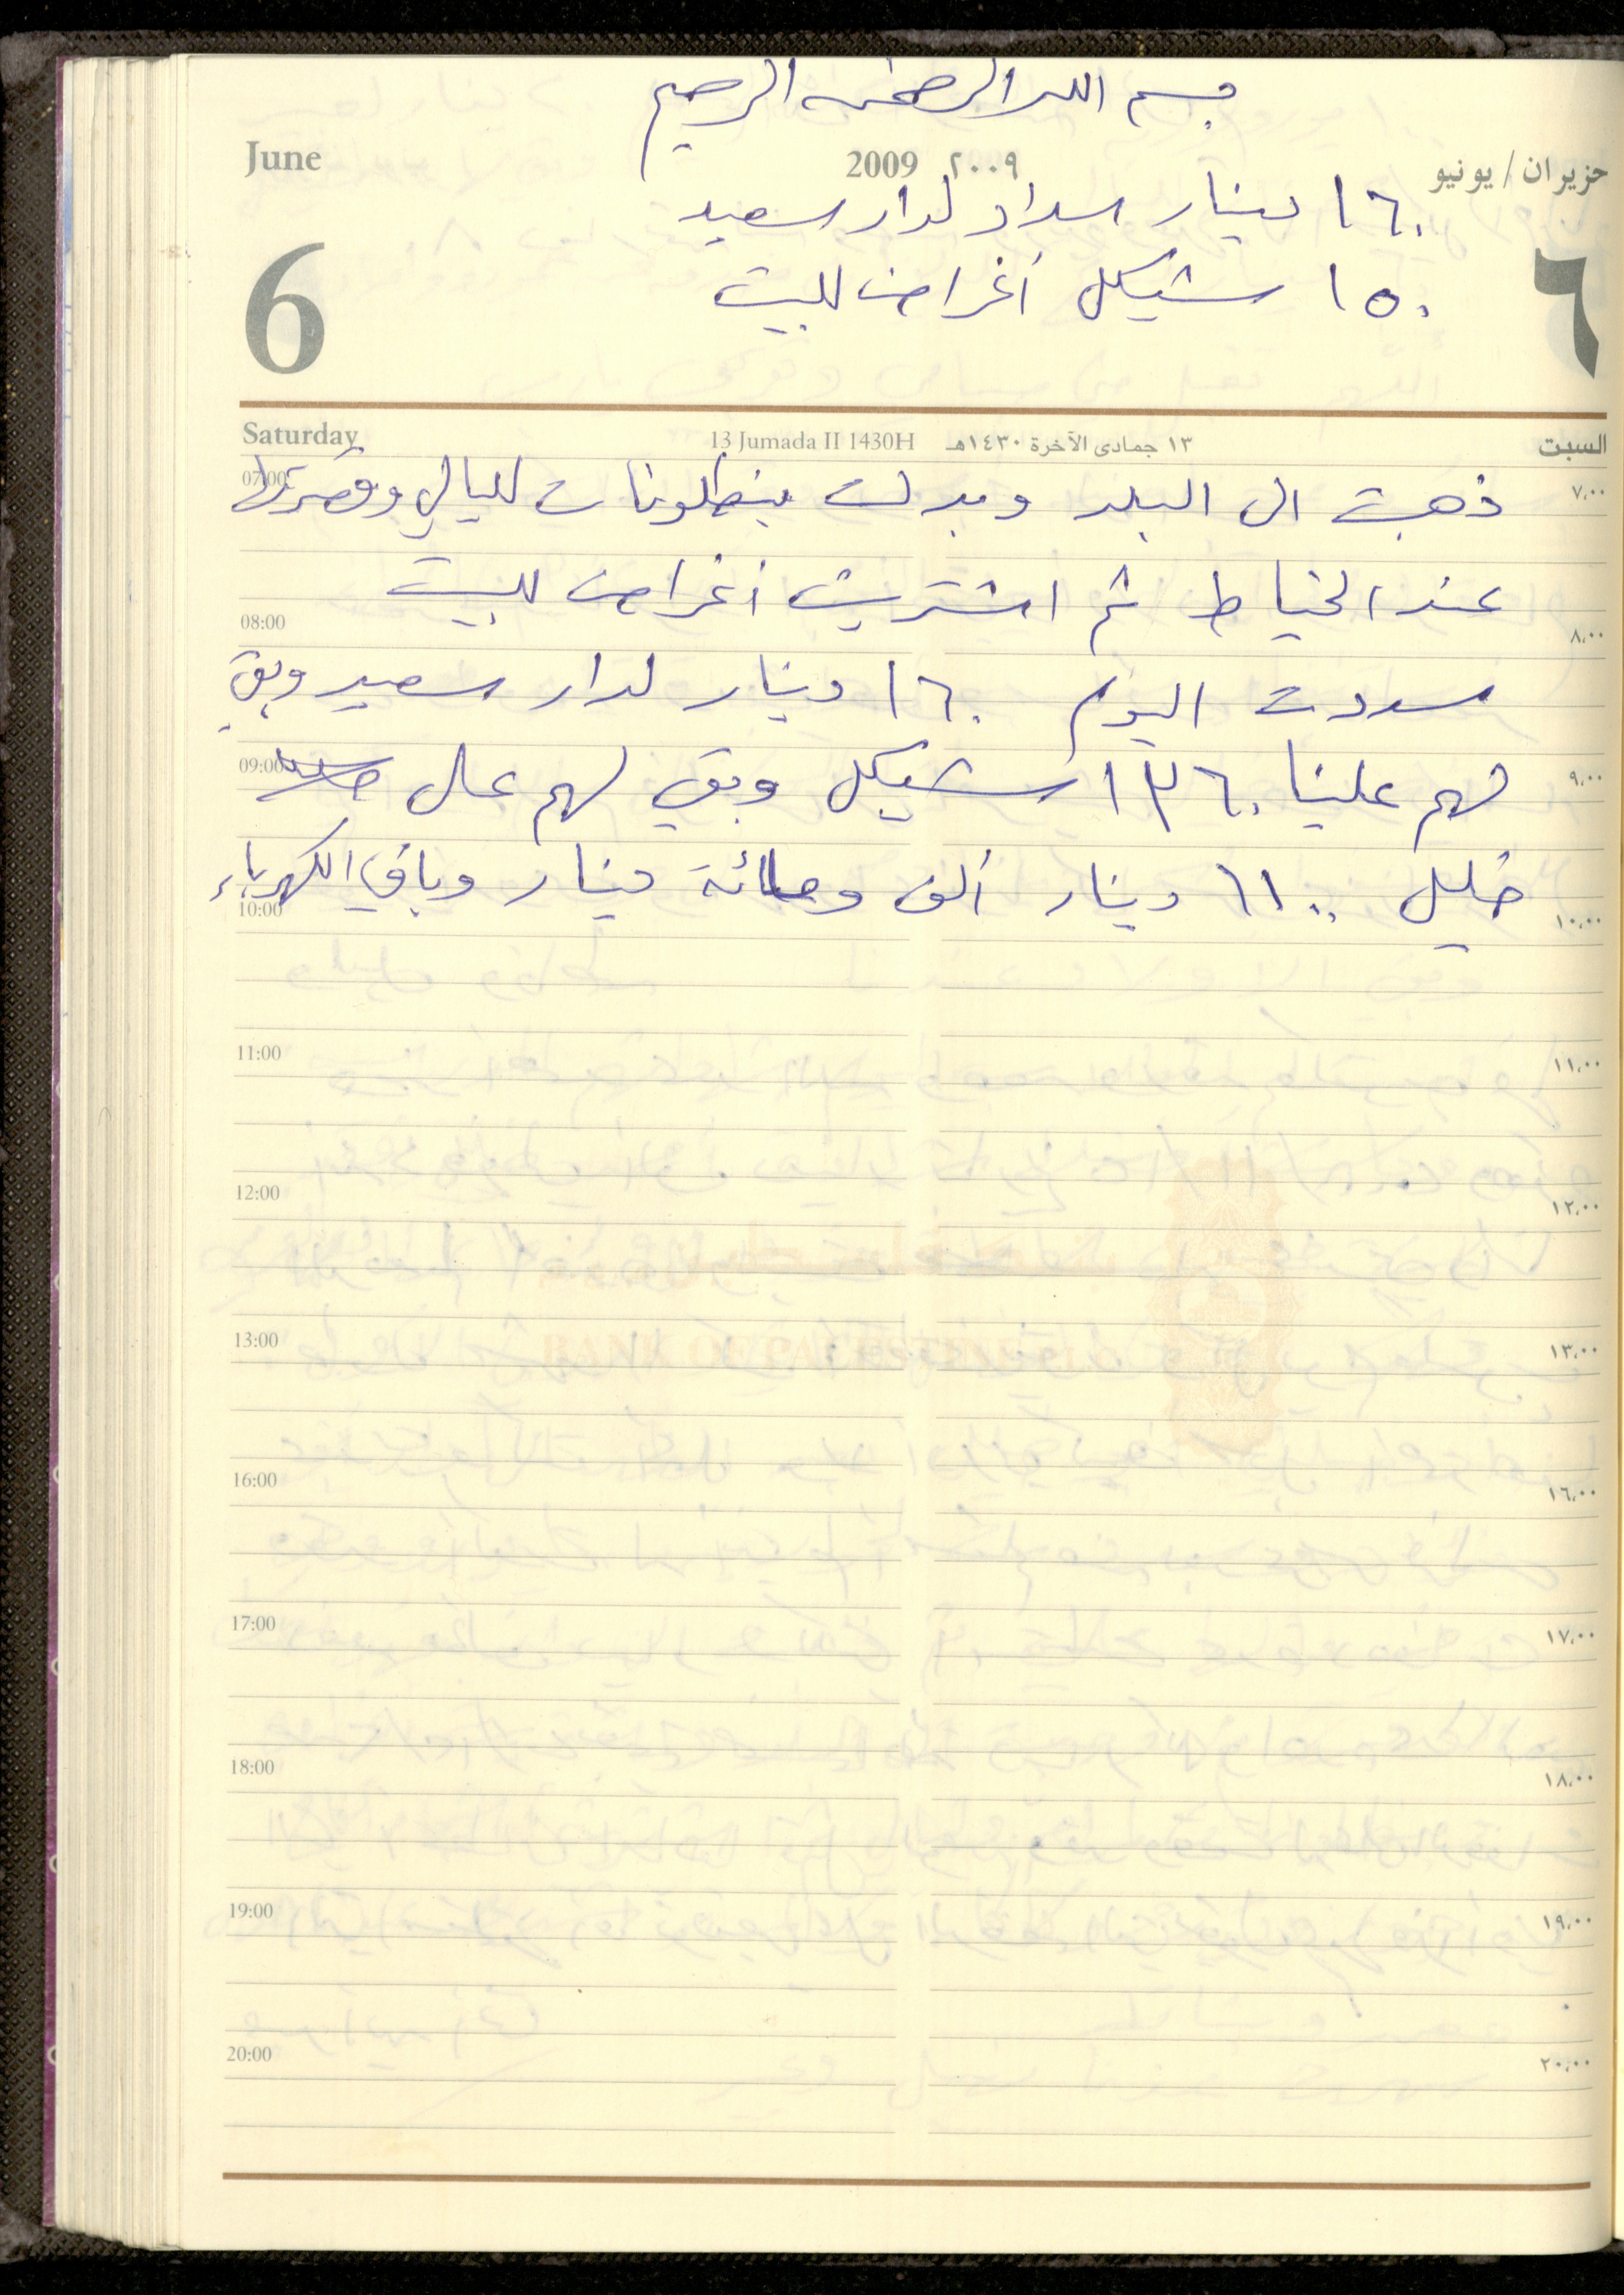 بسم الله الرحمن الرحيم
June 2009 ٢٠٠٩ حزيران / يونيو
١٦٠ دينار سداد لدار سعيد
١٥٠ شيكل أغراض للبيت
6 ٦
Saturday 13 Jumada II 1430H ١٣ جمادى الآخرة ١٤٣٠هـ السبت
07:00 ٧,٠٠
ذهبت الى البلد وبدلت بنطلونات لليالي وقصرتها
عند الخياط ثم اشتريت أغراض للبيت
08:00 ٨,٠٠
سددت اليوم ١٦٠ دينار لدار سعيد وبقي
لهم علينا ١٣٦٠ شيكل وبقي لهم على
09:00 ٩,٠٠
خليل ١١٠٠ دينار ألف ومائة دينار وباقي الكهرباء
10:00 ١٠,٠٠
11:00 ١١,٠٠
12:00 ١٢,٠٠
بنك فلسطين
BANK OF PALESTINE PLC
13:00 ١٣,٠٠
16:00 ١٦,٠٠
17:00 ١٧,٠٠
18:00 ١٨,٠٠
19:00 ١٩,٠٠
20:00 ٢٠,٠٠